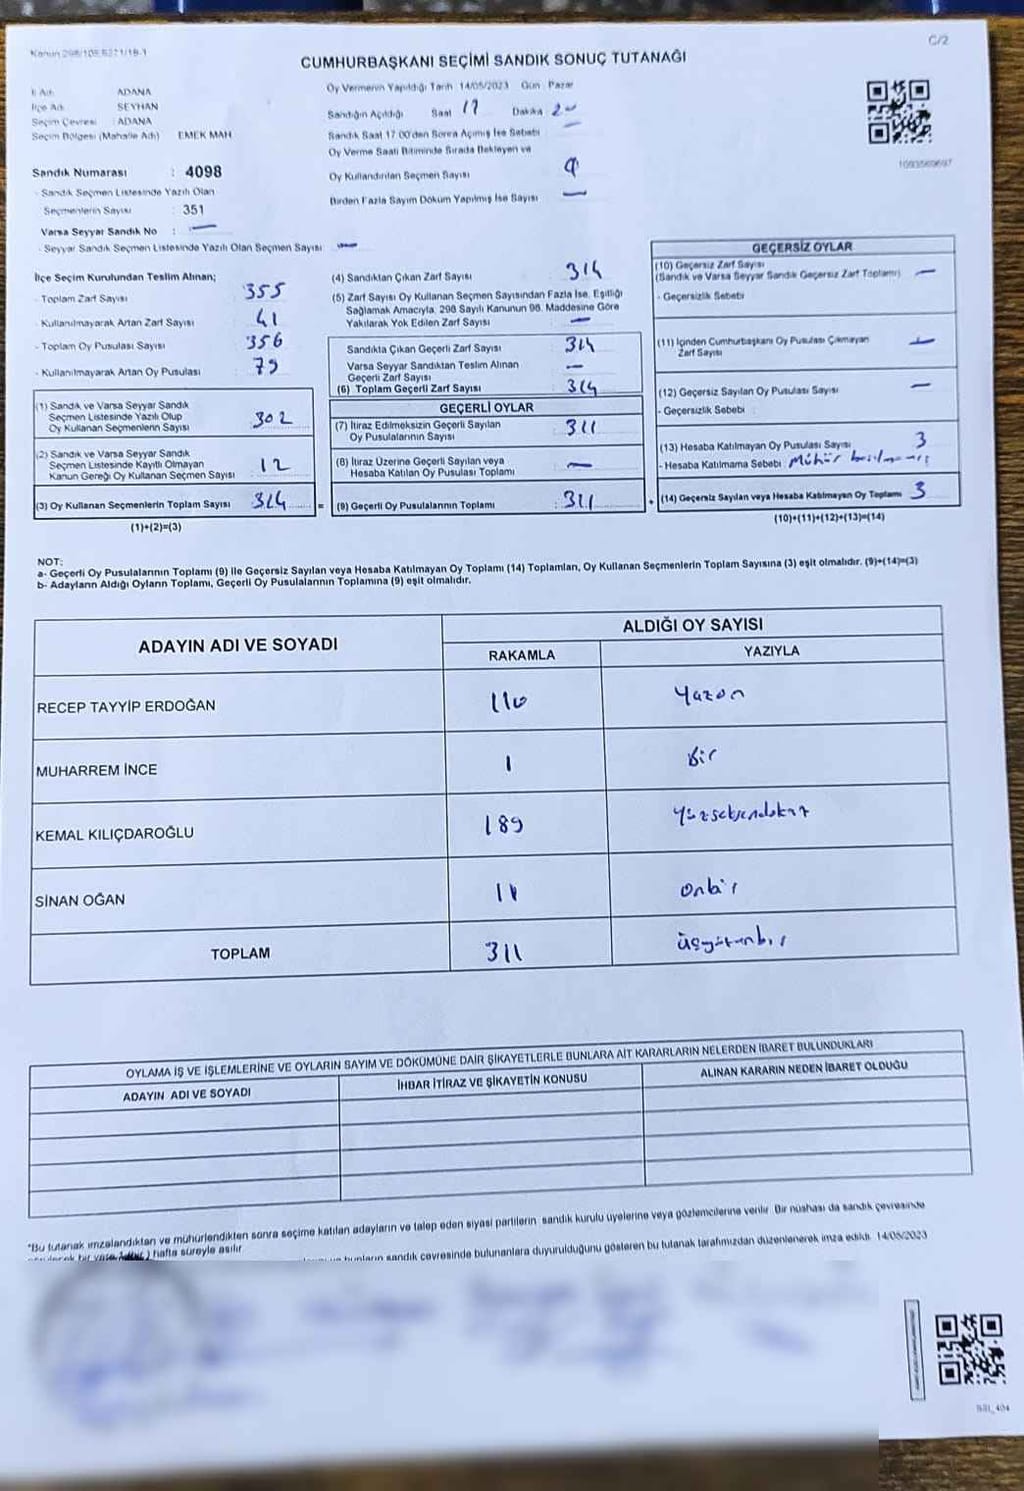 Kanun 298/105 5271/18-1
C/2
CUMHURBAŞKANI SEÇİMİ SANDIK SONUÇ TUTANAĞI
İl Adı : ADANA
İlçe Adı : SEYHAN
Seçim Çevresi : ADANA
Seçim Bölgesi (Mahalle Adı) EMEK MAH
Sandık Numarası : 4098
- Sandık Seçmen Listesinde Yazılı Olan
Seçmenlerin Sayısı : 351
Varsa Seyyar Sandık No : —
- Seyyar Sandık Seçmen Listesinde Yazılı Olan Seçmen Sayısı —
Oy Vermenin Yapıldığı Tarih 14/05/2023 Gün Pazar
Sandığın Açıldığı Saat 17 Dakika
Sandık Saat 17.00'den Sonra Açılmış İse Sebebi
Oy Verme Saati Bitiminde Sırada Bekleyen ve
Oy Kullandırılan Seçmen Sayısı
Birden Fazla Sayım Döküm Yapılmış İse Sayısı —
İlçe Seçim Kurulundan Teslim Alınan;
- Toplam Zarf Sayısı 355
- Kullanılmayarak Artan Zarf Sayısı 41
- Toplam Oy Pusulası Sayısı 356
- Kullanılmayarak Artan Oy Pusulası
(1) Sandık ve Varsa Seyyar Sandık
Seçmen Listesinde Yazılı Olup
Oy Kullanan Seçmenlerin Sayısı 302
(2) Sandık ve Varsa Seyyar Sandık
Seçmen Listesinde Kayıtlı Olmayan
Kanun Gereği Oy Kullanan Seçmen Sayısı 12
(3) Oy Kullanan Seçmenlerin Toplam Sayısı 314 =
(1)+(2)=(3)
(4) Sandıktan Çıkan Zarf Sayısı 314
(5) Zarf Sayısı Oy Kullanan Seçmen Sayısından Fazla İse, Eşitliği
Sağlamak Amacıyla, 298 Sayılı Kanunun 98. Maddesine Göre
Yakılarak Yok Edilen Zarf Sayısı —
Sandıkta Çıkan Geçerli Zarf Sayısı 314
Varsa Seyyar Sandıktan Teslim Alınan
Geçerli Zarf Sayısı —
(6) Toplam Geçerli Zarf Sayısı 314
GEÇERLİ OYLAR
(7) İtiraz Edilmeksizin Geçerli Sayılan
Oy Pusulalarının Sayısı 311
(8) İtiraz Üzerine Geçerli Sayılan veya
Hesaba Katılan Oy Pusulası Toplamı —
(9) Geçerli Oy Pusulalarının Toplamı : 311 +
GEÇERSİZ OYLAR
(10) Geçersiz Zarf Sayısı
(Sandık ve Varsa Seyyar Sandık Geçersiz Zarf Toplamı) —
- Geçersizlik Sebebi
(11) İçinden Cumhurbaşkanı Oy Pusulası Çıkmayan
Zarf Sayısı —
(12) Geçersiz Sayılan Oy Pusulası Sayısı —
- Geçersizlik Sebebi
(13) Hesaba Katılmayan Oy Pusulası Sayısı 3
- Hesaba Katılmama Sebebi : Mühür
(14) Geçersiz Sayılan veya Hesaba Katılmayan Oy Toplamı 3
(10)+(11)+(12)+(13)=(14)
NOT:
a- Geçerli Oy Pusulalarının Toplamı (9) ile Geçersiz Sayılan veya Hesaba Katılmayan Oy Toplamı (14) Toplamları, Oy Kullanan Seçmenlerin Toplam Sayısına (3) eşit olmalıdır. (9)+(14)=(3)
b- Adayların Aldığı Oyların Toplamı, Geçerli Oy Pusulalarının Toplamına (9) eşit olmalıdır.
ADAYIN ADI VE SOYADI ALDIĞI OY SAYISI
RAKAMLA YAZIYLA
RECEP TAYYİP ERDOĞAN 110 Yüzon
MUHARREM İNCE 1 Bir
KEMAL KILIÇDAROĞLU 189 Yüzseksendokuz
SİNAN OĞAN 11 Onbir
TOPLAM 311 üçyüzonbir
OYLAMA İŞ VE İŞLEMLERİNE VE OYLARIN SAYIM VE DÖKÜMÜNE DAİR ŞİKAYETLERLE BUNLARA AİT KARARLARIN NELERDEN İBARET BULUNDUKLARI
ADAYIN ADI VE SOYADI İHBAR İTİRAZ VE ŞİKAYETİN KONUSU ALINAN KARARIN NEDEN İBARET OLDUĞU
*Bu tutanak imzalandıktan ve mühürlendikten sonra seçime katılan adayların ve talep eden siyasi partilerin sandık kurulu üyelerine veya gözlemcilerine verilir. Bir nüshası da sandık çevresinde
hafta süreyle asılır
sandık çevresinde bulunanlara duyurulduğunu gösteren bu tutanak tarafımızdan düzenlenerek imza edildi. 14/05/2023